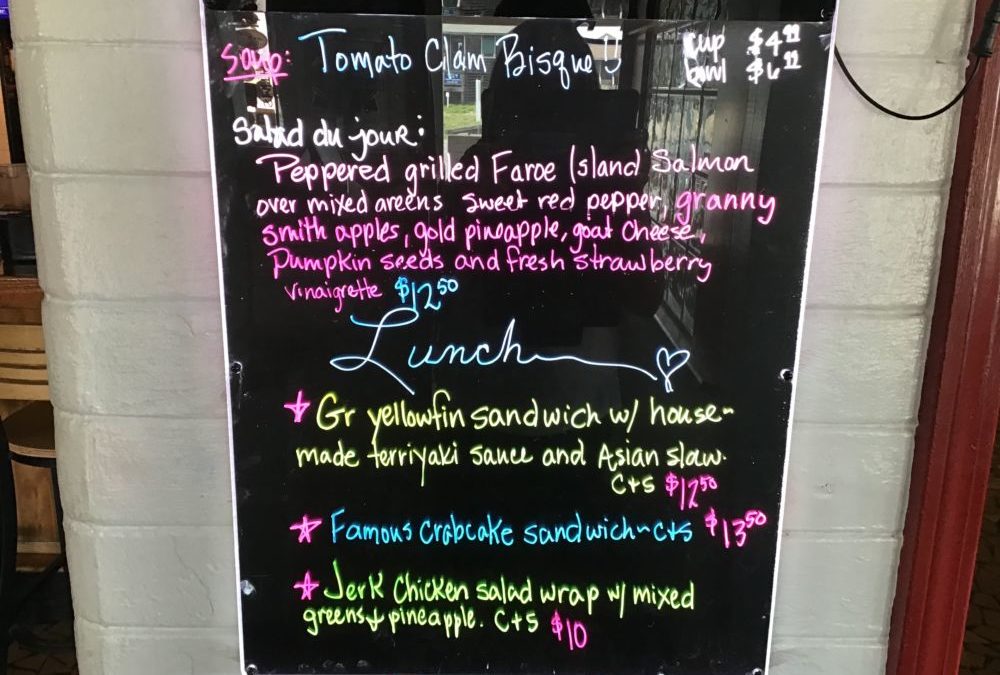 Soup: Tomato Clam Bisque!! cup $4.99
bowl $6.99
Salad du jour:
Peppered grilled Faroe Island Salmon
over mixed greens sweet red pepper, granny
smith apples, gold pineapple, goat cheese,
Pumpkin seeds and fresh strawberry
vinaigrette $12.50
Lunch
Gr yellowfin sandwich w/ house-
made terriyaki sauce and Asian slaw.
C+S $12.50
Famous Crabcake sandwich~C+S $13.50
Jerk Chicken salad wrap w/ mixed
greens + pineapple. C+S $10